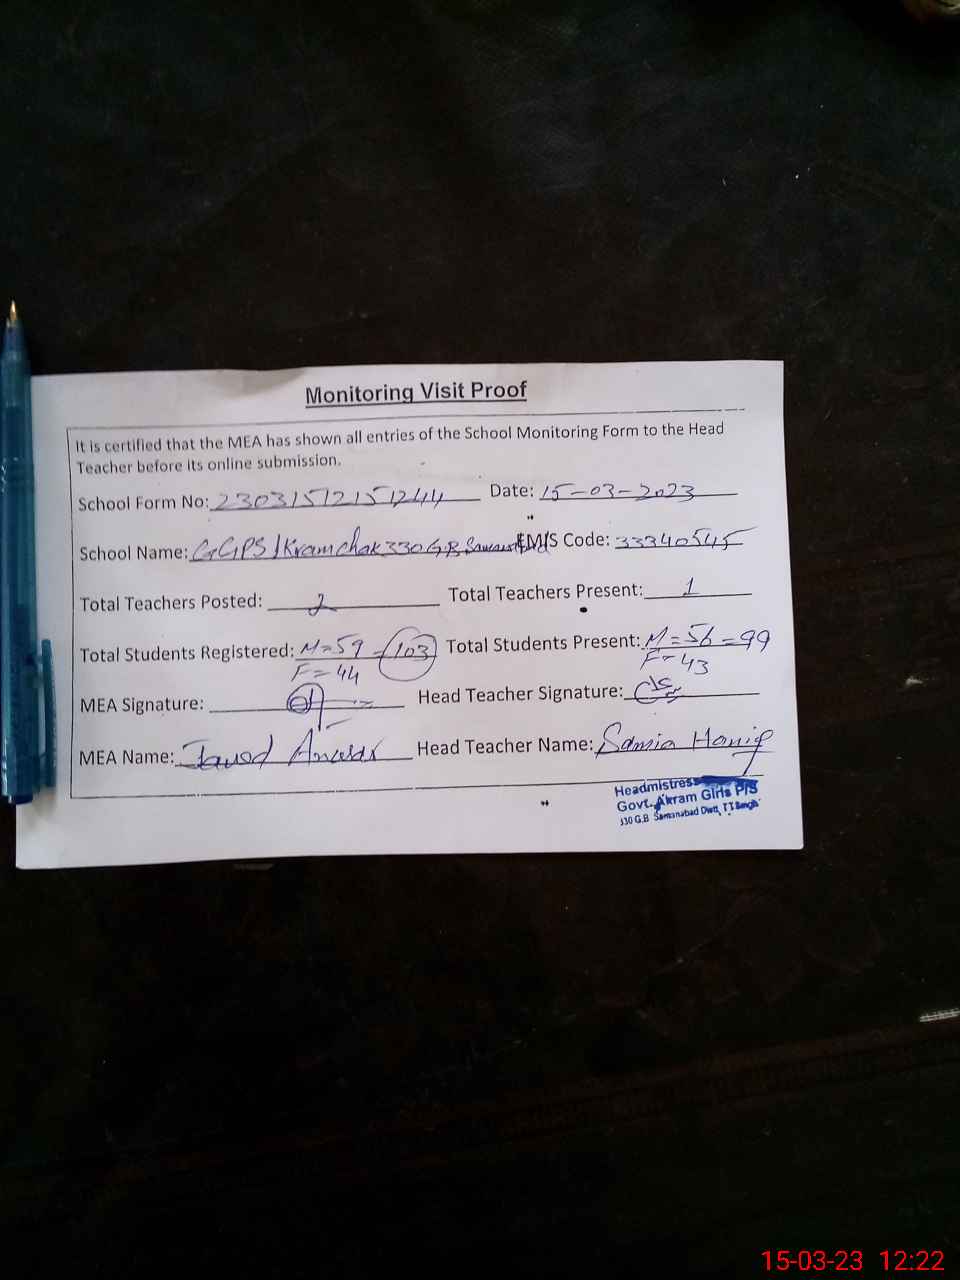 Monitoring Visit Proof
It is certified that the MEA has shown all entries of the School Monitoring Form to the Head
Teacher before its online submission.
School Form No: 23031512151244 Date: 15-03-2023
School Name: GGPS Ikram chak 330 G.B EMIS Code: 33340545
Total Teachers Posted: 2 Total Teachers Present: 1
Total Students Registered: M=59 - 103 Total Students Present: M=56=99
F=44 F=43
MEA Signature: Head Teacher Signature:
MEA Name: Javed Anwar Head Teacher Name: Samia Hanif
Headmistress
Govt. Akram Girls P/S
330 G.B Samanabad Distt, T.T Singh
15-03-23 12:22